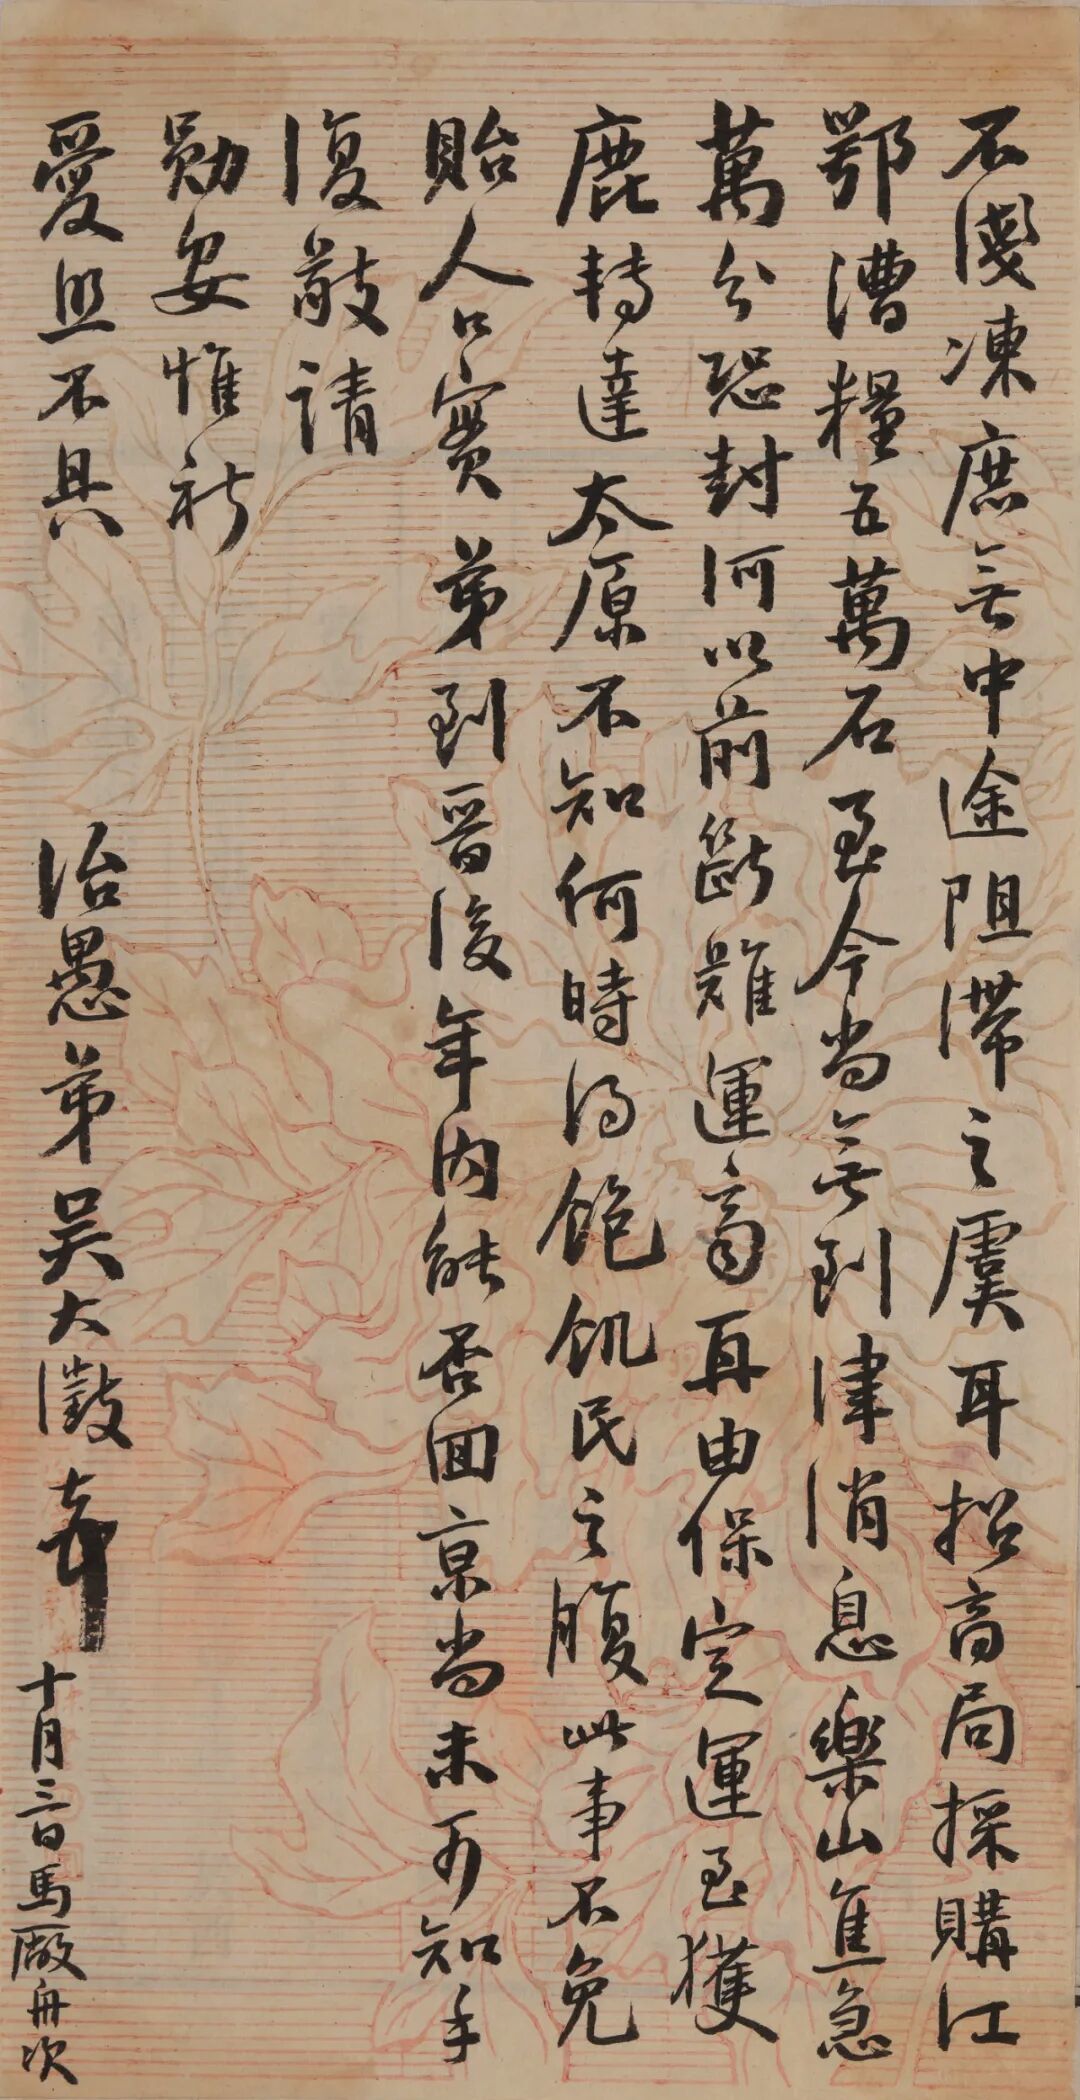 不淺凍庶無中途阻滯之虞耳招商局採購江
鄂漕糧五萬石至今尚無到津消息樂山焦急
萬分恐封河以前斷難運齊再由保定運至獲
鹿轉達太原不知何時得飽飢民之腹此事不免
貽人口實弟到晉後年內能否回京尚未可知手
復敬請
勛安惟祈
愛照不具
治愚弟吳大澂
十月三日馬廠舟次